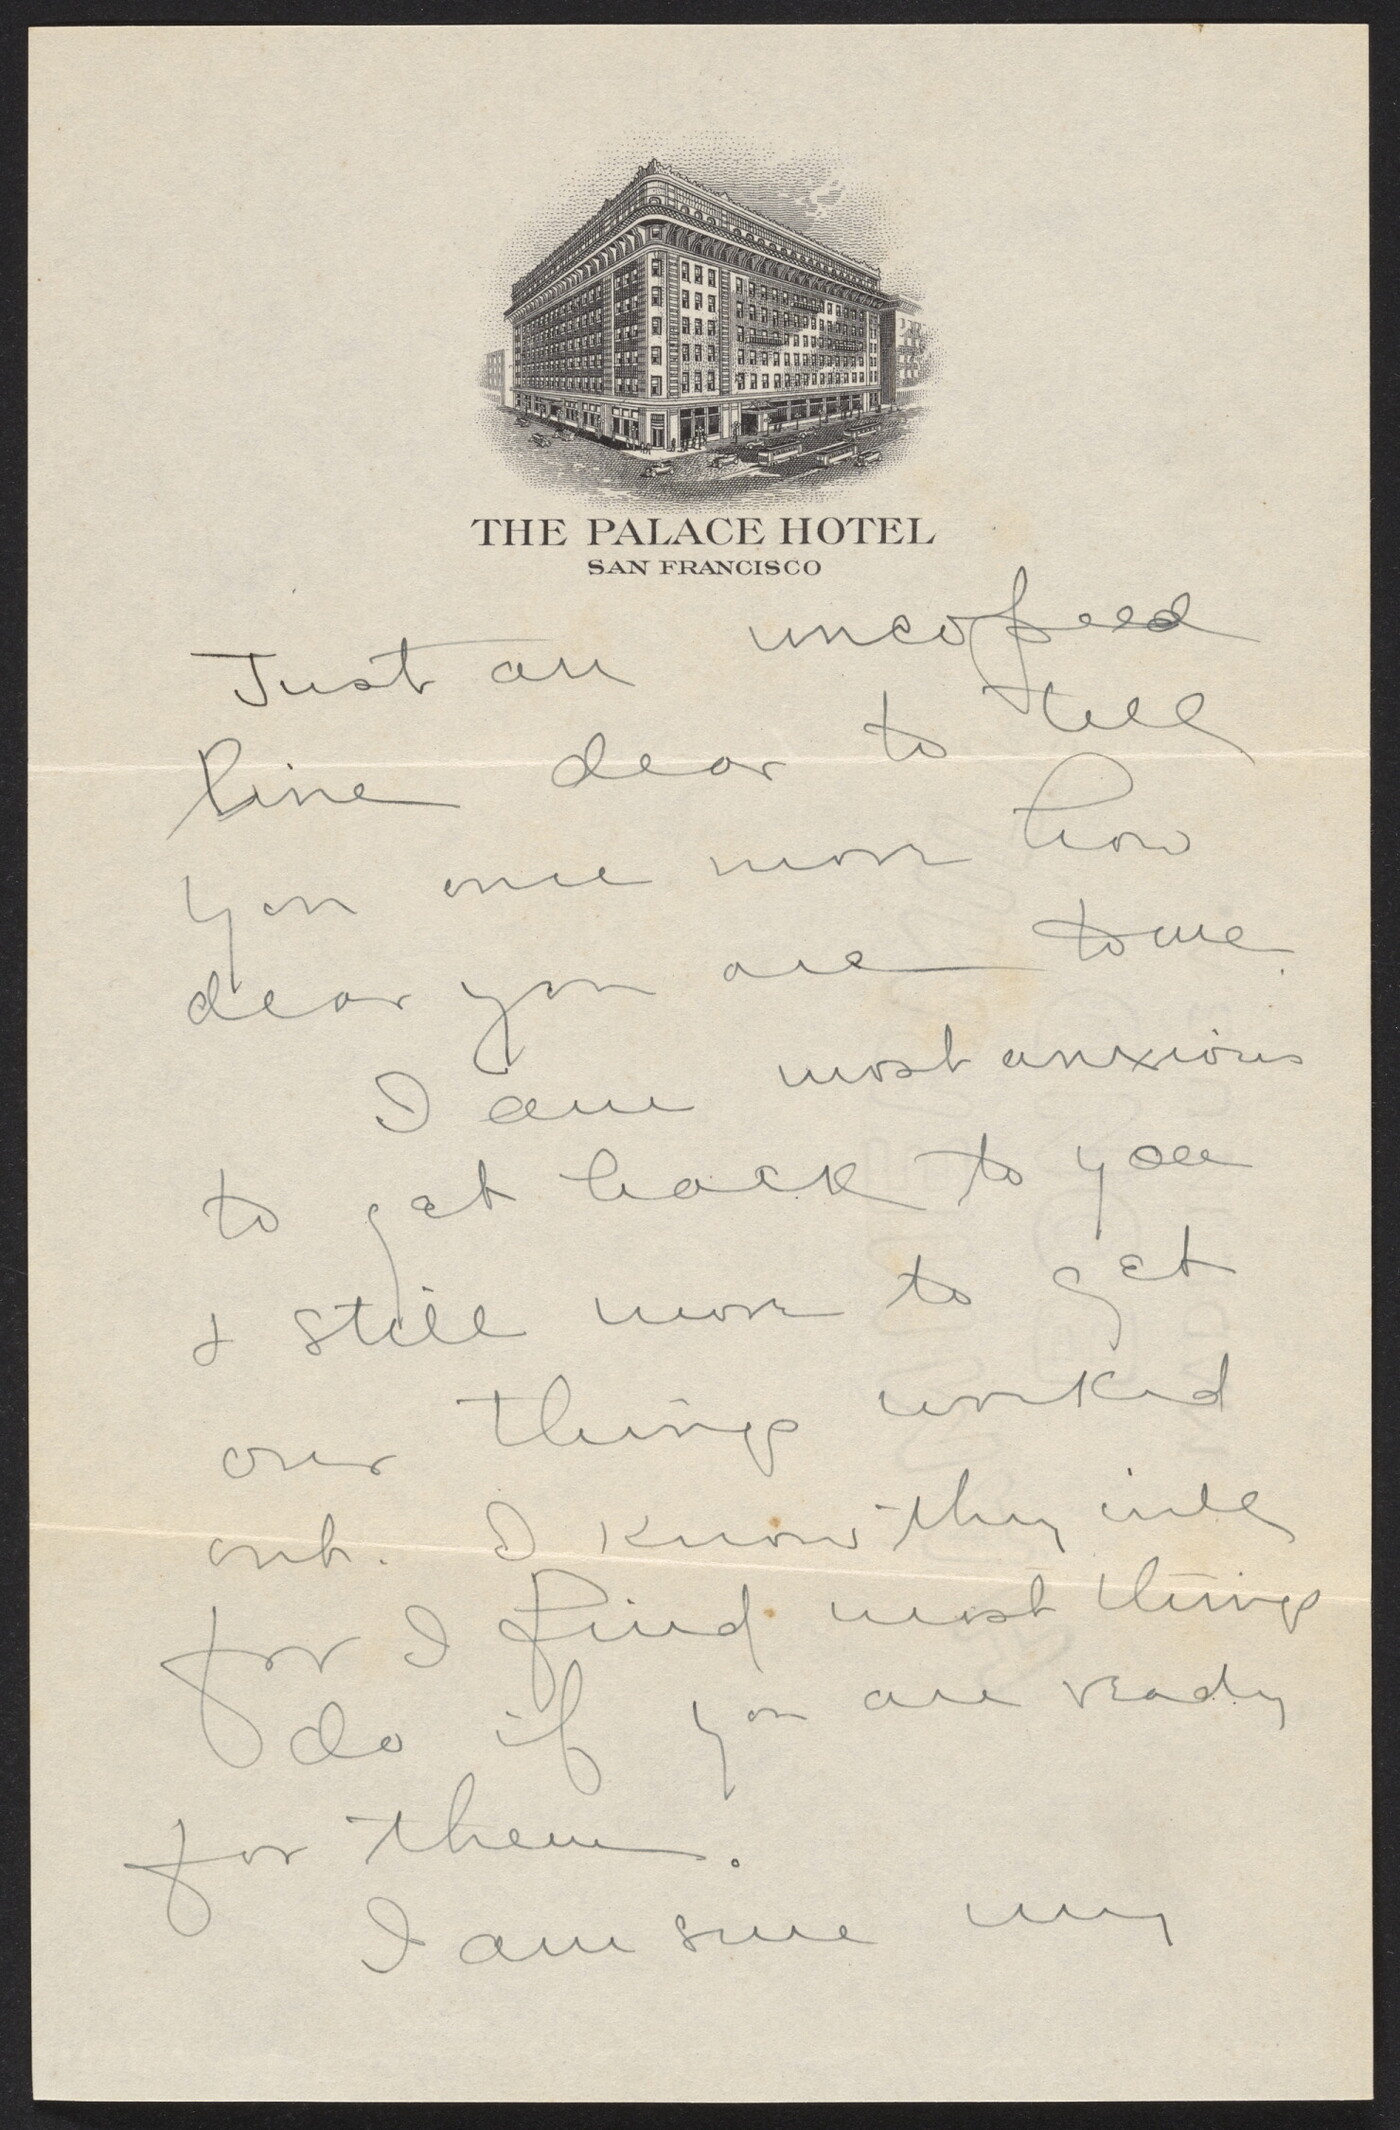 THE PALACE HOTEL
SAN FRANCISCO
Just an uncopeed
line dear to tell
you once more how
dear you are to me.
I am most anxious
to get back to you
& still more to get
our things worked
out. I know they will
for I find most things
do if you are ready
for them.
I am sure my